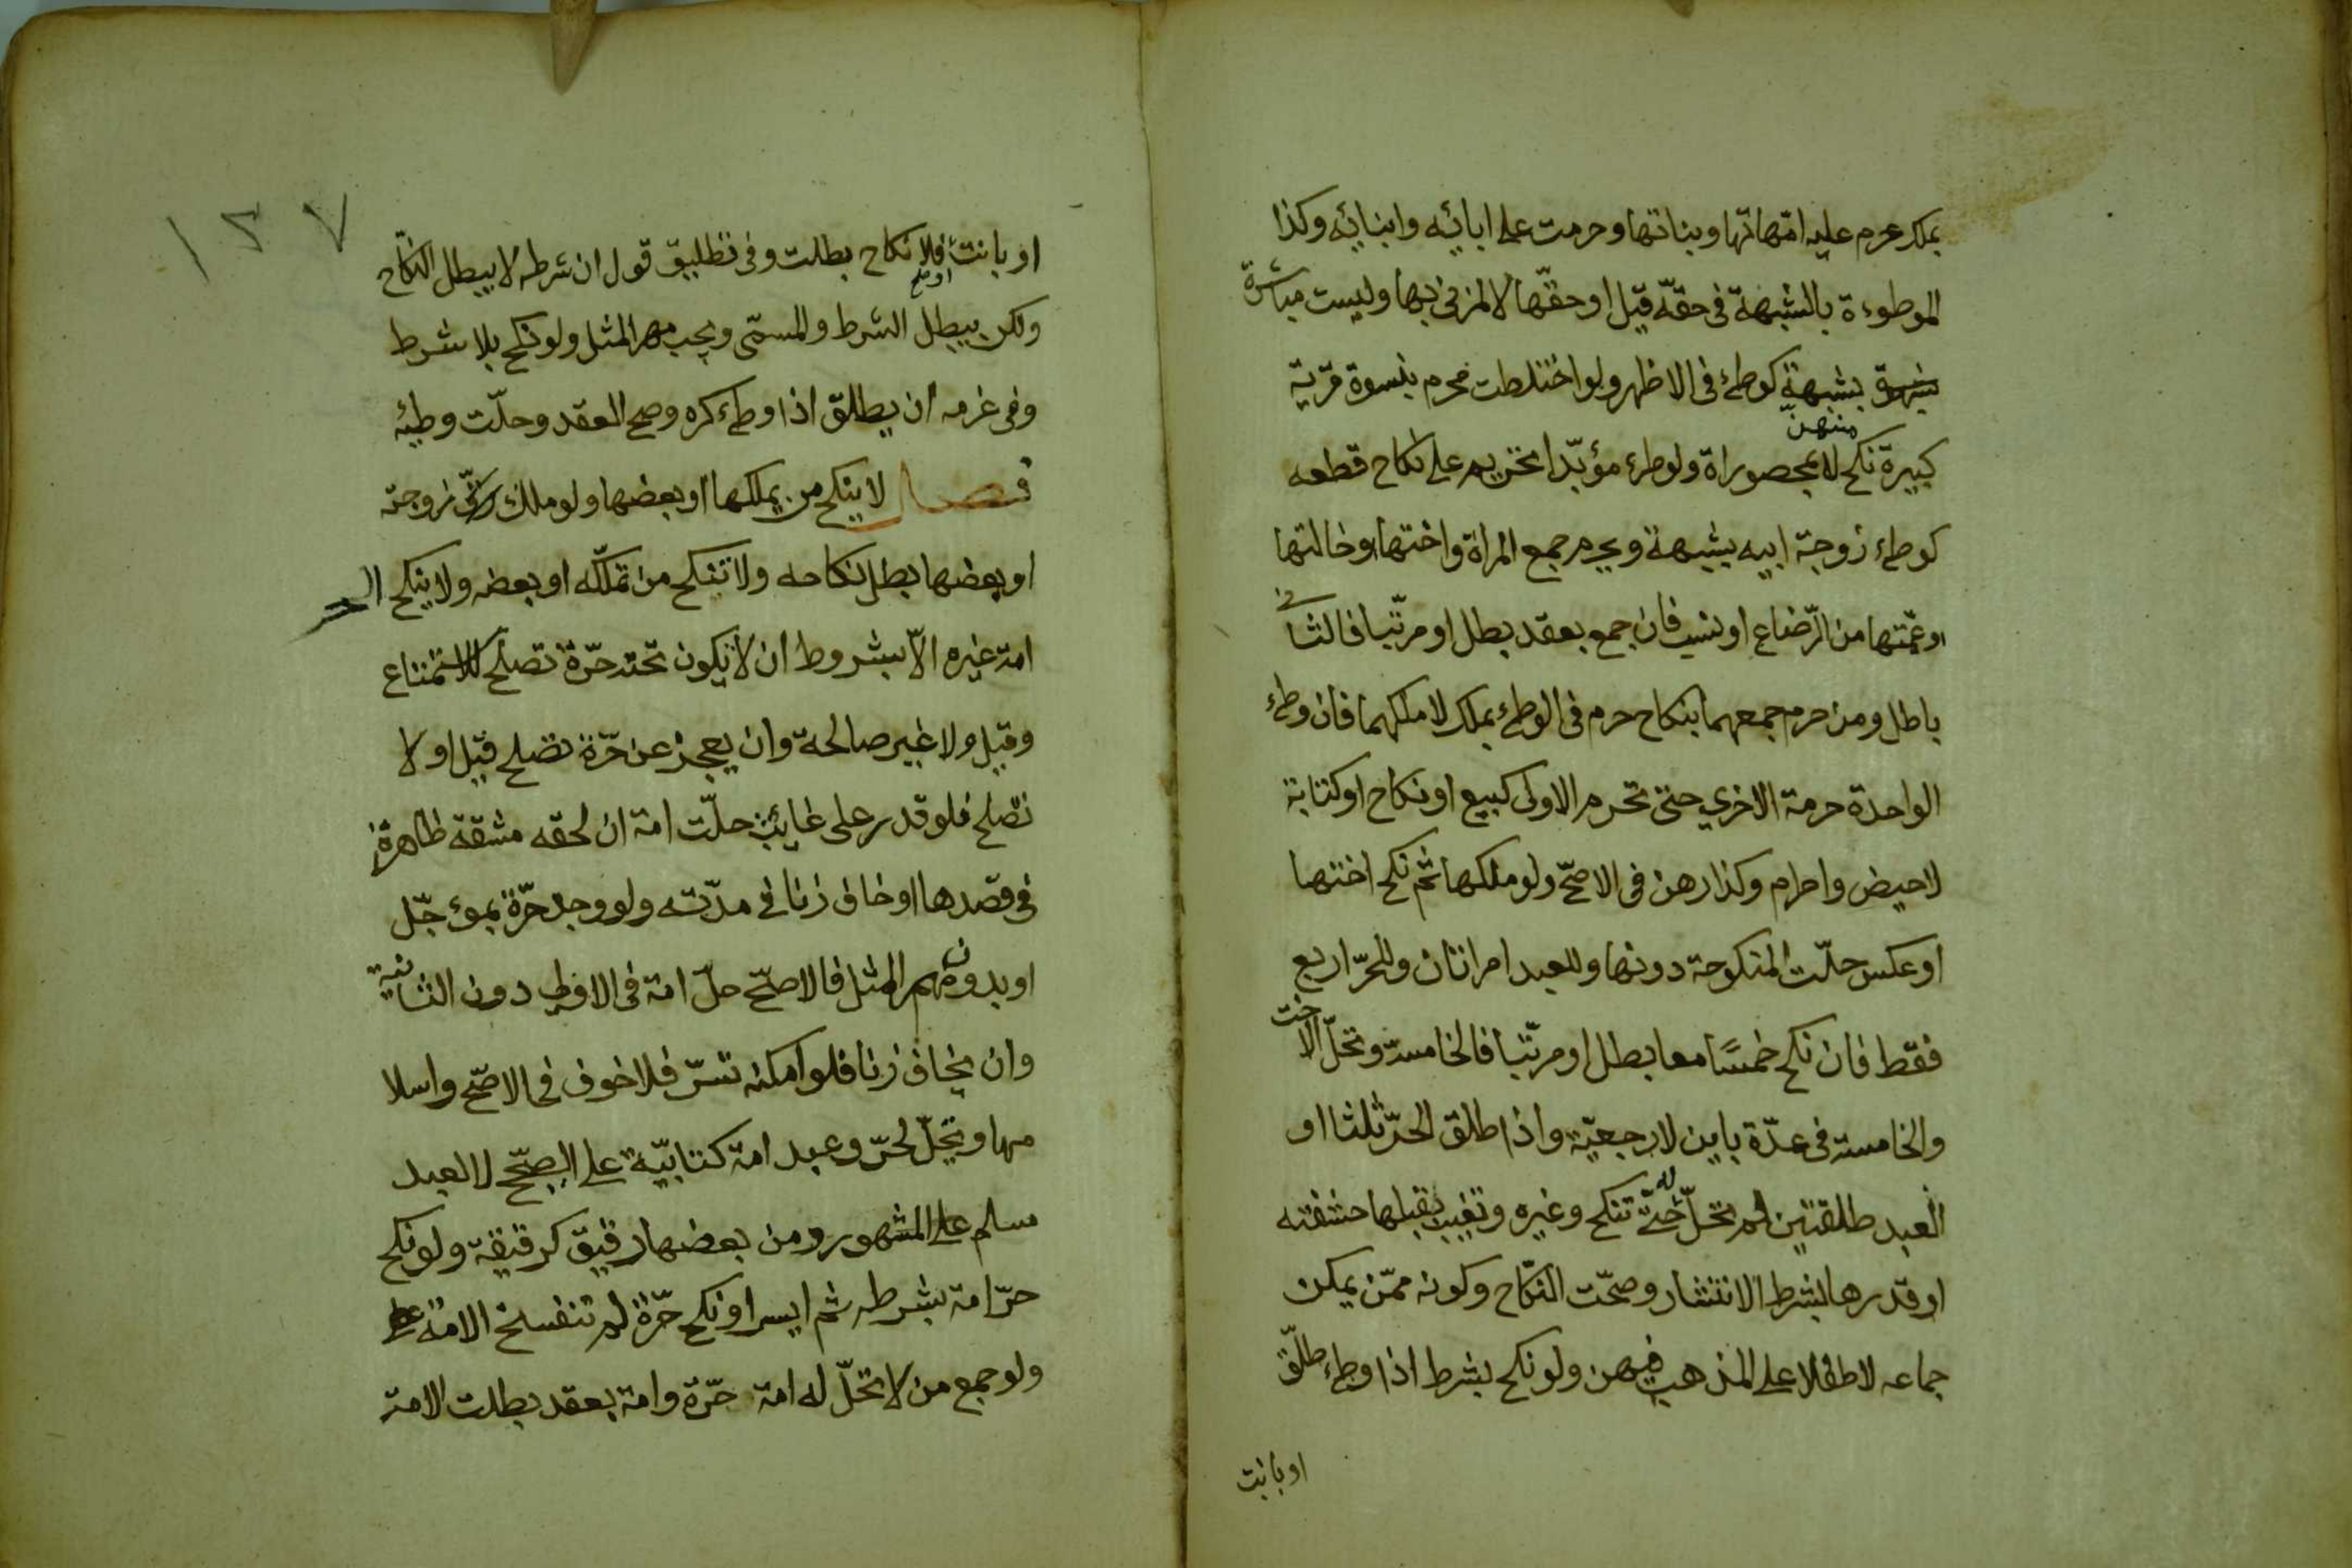 بملك حرم عليه امّهاتها وبناتها وحرمت على ابائِه وابنائِه وكذا
الموطوءة بالشبهة فى حقّه قيل او حقّها لا المزنى بها وليست مباشرة
بشهوة بشبهة كوطئ فى الاظهر ولو اختلطت محرم بنسوة قرية
كبيرة نكح منهن لا بمحصوراة ولو طرئ مؤبّدا تحريم على نكاح قطعه
كوطئ زوجة ابيه بشبهة ويحرم جمع المراة واختها وخالتها
او عمّتها من الرّضاع او نسب فان جمع بعقد بطل او مرتّبا فالثانى
باطل ومن حرم جمعهما بنكاح حرم فى الوطئ بملك لا ملكهما فان وطئ
الواحدة حرمة الاخري حتى تحرم الاولى كبيع او نكاح او كتابة
لا حيض واحرام وكذا رهن فى الاصحّ ولو ملكها ثم نكح اختها
او عكس حلّت المنكوحة دونها وللعبد امراتان وللحرّ اربع
فقط فان نكح خمسًا معا بطل او مرتّبا فالخامسة وتحلّ الاخت
والخامسة فى عدّة باين لا رجعيّة واذا طلق الحرّ ثلثا او
العبد طلقتين لم تحلّ له حتّى تنكح وغيره وتغيب بقبلها حشفته
او قدرها بشرط الانتشار وصحّت النكّاح وكونه ممّن يمكن
جماعه لا طفلا على المذهب فيهن ولو نكح بشرط اذا وطئ طلّق
او بانت
١٢٧
او بانت او فلا نكاح بطلت وفى تطليق قول ان شرطه لا يبطل النكّاح
ولكن يبطل الشرط والمسمّى ويجب مهر المثل ولو نكح بلا شرط
وفى عزمه ان يطلق اذا وطئ كره وصح العقد وحلّت وطيه
فصل لا ينكح من يملكها او بعضها ولو ملك زوجته
او بعضها بطل نكاحه ولا تنكح من تملكّه او بعضه ولا ينكح الحر
امة غيره الاّ بشروط ان لا يكون تحته حرّة تصلح للاستمتاع
وقيل ولا غير صالحة وان يعجز عن حرّة تصلح قيل او لا
تصلح فلو قدر على غايبة حلّت امة ان لحقه مشقة ظاهرة
فى قصدها او خاف زنا فى مدّته ولو وجد حرّة بموءجّل
او بدون مهر المثل فالاصحّ حلّ امة فى الاولى دون الثانية
وان يخاف زنا فلو امكنه تسرّ فلا خوف فى الاصحّ واسلا
مها ويحلّ لحرّ وعبد امة كتابيّة على الصحّيح لا لعبد
مسلم على المشهور ومن بعضها رقيق كرقيقة ولو نكح
حرّ امة بشرطه ثم ايسر او نكح حرّة لم تنفسخ الامة
ولو جمع من لا تحلّ له امة حرّة وامة بعقد بطلت الامة